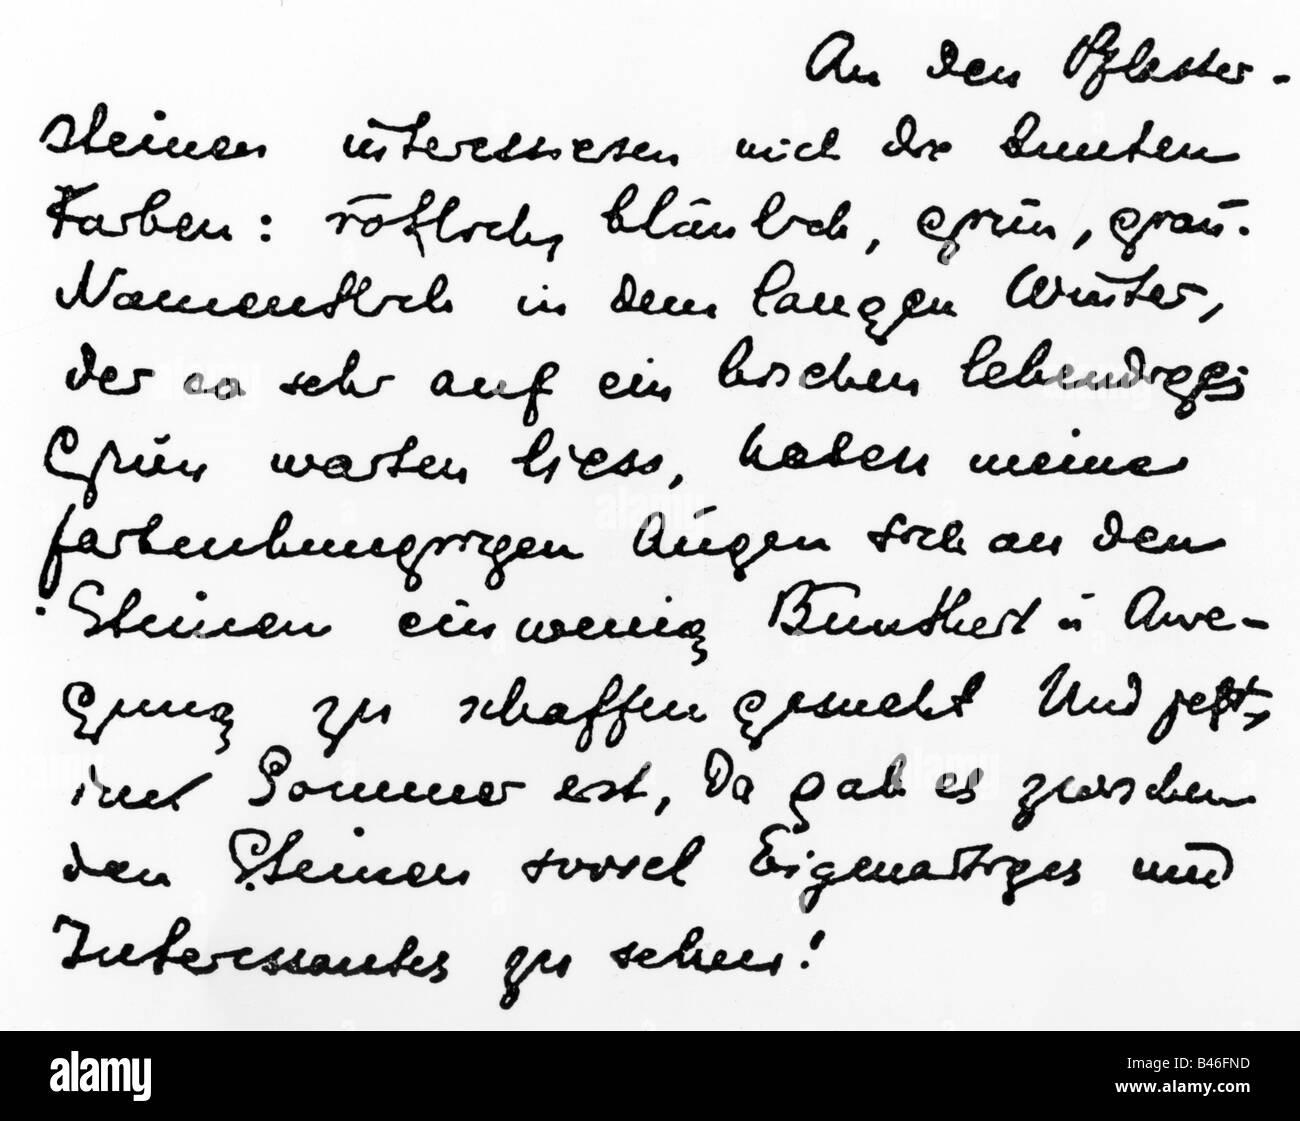 An den Pflaster-
steinen interessieren mich die bunten
Farben: rötlich, bläulich, grün, grau.
Namentlich in dem langen Winter,
der so sehr auf ein bischen lebendiges
Grün warten liess, haben meine
farbenhungrigen Augen sich an den
Steinen ein wenig Buntheit u Anre-
gung zu schaffen gesucht Und jetzt,
im Sommer erst, da gab es zwischen
den Steinen soviel Eigenartiges und
Interessantes zu sehen!
alamy
Image ID: B46FND
www.alamy.com